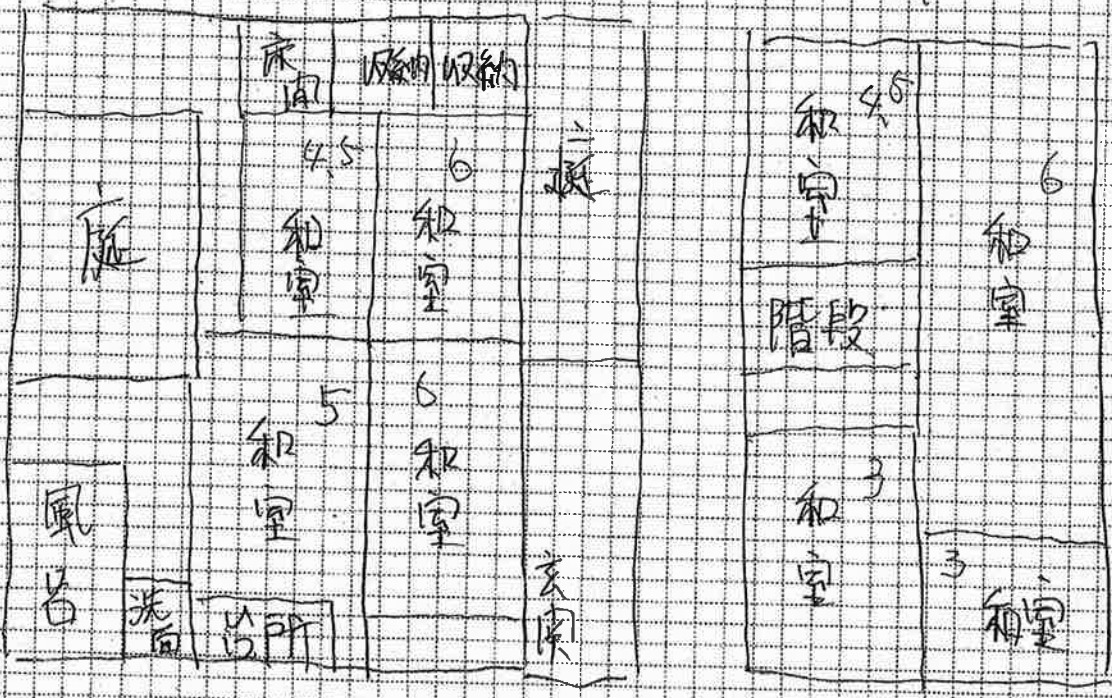 床間
収納
収納
4.5
和室
6
和室
庭
庭
5
和室
6
和室
風呂
洗面
台所
玄関
4.5
和室
6
和室
階段
3
和室
3
和室